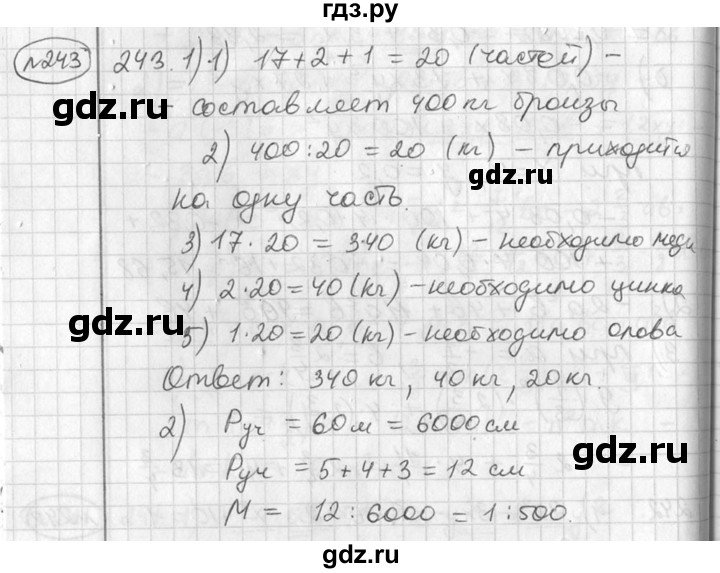 гдз.ру
№243 243. 1) 1) 17+2+1 = 20 (частей) –
gdz.ru
– составляет 400 кг бронзы
gdz.ru
2) 400:20 = 20 (кг) – приходится
на одну часть.
3) 17·20 = 3·40 (кг) – необходимо меди
4) 2·20 = 40 (кг) – необходимо цинка
5) 1·20 = 20 (кг) – необходимо олова
gdz.ru
Ответ: 340 кг, 40 кг, 20 кг.
2) Pуч = 60 м = 6000 см
gdz.ru
Pуч = 5+4+3 = 12 см
М = 12 : 6000 = 1:500.
gdz.ru
gdz.ru